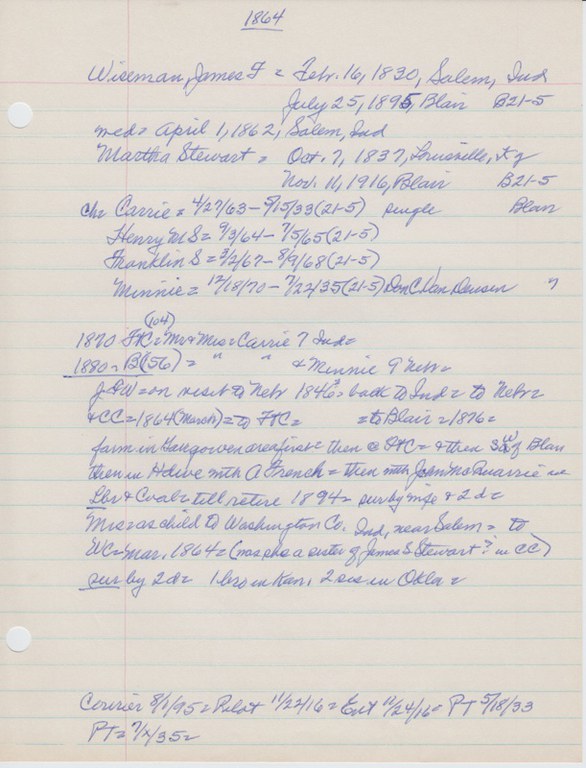 1864
Wiseman, James F = Febr. 16, 1830, Salem, Ind
July 25, 1895, Blair B21-5
med = April 1, 1862, Salem, Ind
Martha Stewart = Oct. 7, 1837, Louisville, Ky
Nov. 11, 1916, Blair B21-5
ch = Carrie = 4/27/63 - 5/15/33 (21-5) single Blair
Henry M S = 9/3/64 - 7/5/65 (21-5)
Franklin S = 3/2/67 - 8/9/68 (21-5)
Minnie = 12/18/70 - 7/22/35 (21-5) Don C Van Deusen "
(104)
1870 FtC = Mr & Mrs = Carrie 7 Ind =
1880 = Bl(56) = " " & Minnie 9 Nebr =
J & W = on visit to Nebr 1846? = back to Ind = to Nebr =
& CC = 1864 (March) = to FtC = = to Blair = 1876 =
farm in area first = then @ FtC = & then of Blair
then in H dive with A French = then with John McQuarrie in
Lbr & Coal = till retire 1894 = sur by wife & 2 d =
Mrs = as child to Washington Co. Ind, near Salem = to
WC = Mar. 1864 = (was she a sister of James S Stewart? in CC)
sur by 2 d = 1 bro in Kan, 2 sis in Okla =
Courier 8/1/95 = Pilot 11/22/16 = Ent 11/24/16 = PT 5/18/33
PT = 7/ /35 =